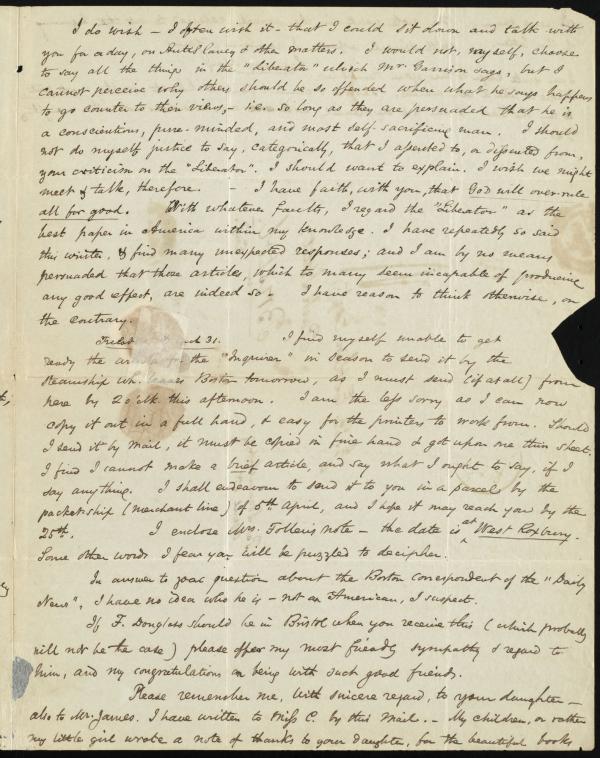 I do wish – I often wish it – that I could sit down and talk with
you for a day, on Anti Slavery & other matters. I would not, myself, choose
to say all the things in the "Liberator" which Mr. Garrison says, but I
cannot perceive why others should be so offended when what he says happens
to go counter to their views, – i.e. so long as they are persuaded that he is
a conscientious, pure-minded, and most self-sacrificing man. I should
not do myself justice to say, categorically, that I assented to, or dissented from,
your criticism on the "Liberator". I should want to explain. I wish we might
meet & talk, therefore. – I have faith, with you, that God will over-rule
all for good. With whatever faults, I regard the "Liberator" as the
best paper in America within my knowledge. I have repeatedly so said
this winter, & find many unexpected responses; and I am by no means
persuaded that those articles, which to many seem incapable of producing
any good effect, are indeed so. I have reason to think otherwise, on
the contrary.
31. I find myself unable to get
ready the article for the "Inquirer" in season to send it by the
steamship wh. leaves Boston tomorrow, as I must send (if at all) from
here by 2 o'clk this afternoon. I am the less sorry as I can now
copy it out in a full hand, & easy for the printers to work from. Should
I send it by mail, it must be copied in fine hand & got upon one thin sheet.
I find I cannot make a brief article, and say what I ought to say, if I
say anything. I shall endeavour to send it to you in a parcel by the
packet-ship (merchant line) of 5th April, and I hope it may reach you by the
25th. I enclose Mrs. Follen's note – the date is at West Roxbury.
Some other words I fear you will be puzzled to decipher.
In answer to your question about the Boston correspondent of the "Daily
News", I have no idea who he is – not an American, I suspect.
If F. Douglass should be in Bristol when you receive this (which probably
will not be the case) please offer my most friendly sympathy & regard to
him, and my congratulations on being with such good friends.
Please remember me, with sincere regard, to your daughter –
also to Mr. James. I have written to Miss C. by this mail. – My children, or rather
my little girl wrote a note of thanks to your daughter, for the beautiful books